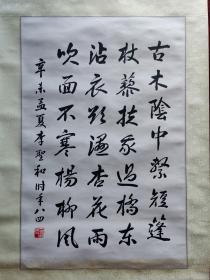 古木陰中繫短篷
杖藜扶我過橋東
沾衣欲濕杏花雨
吹面不寒楊柳風
辛未孟夏李聖和时年八四